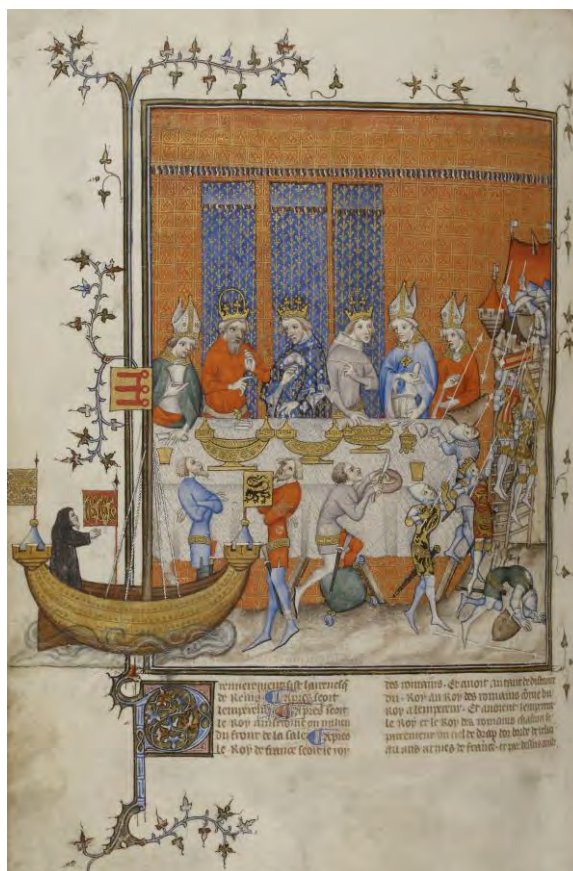 remierement sist larcevesq
de Reins Apres seoit
lempereur Apres seoit
le Roy ou milieu
du front de la sale Apres
le Roy de france seoit le roy
des romains. Et avoit autant de distance
du Roy au Roy des romains come du
Roy a lempereur. Et avoient lempereur
le Roy et le Roy des romains chascun se
pareement un ciel de drap dor borde de
armes de france et par dessus